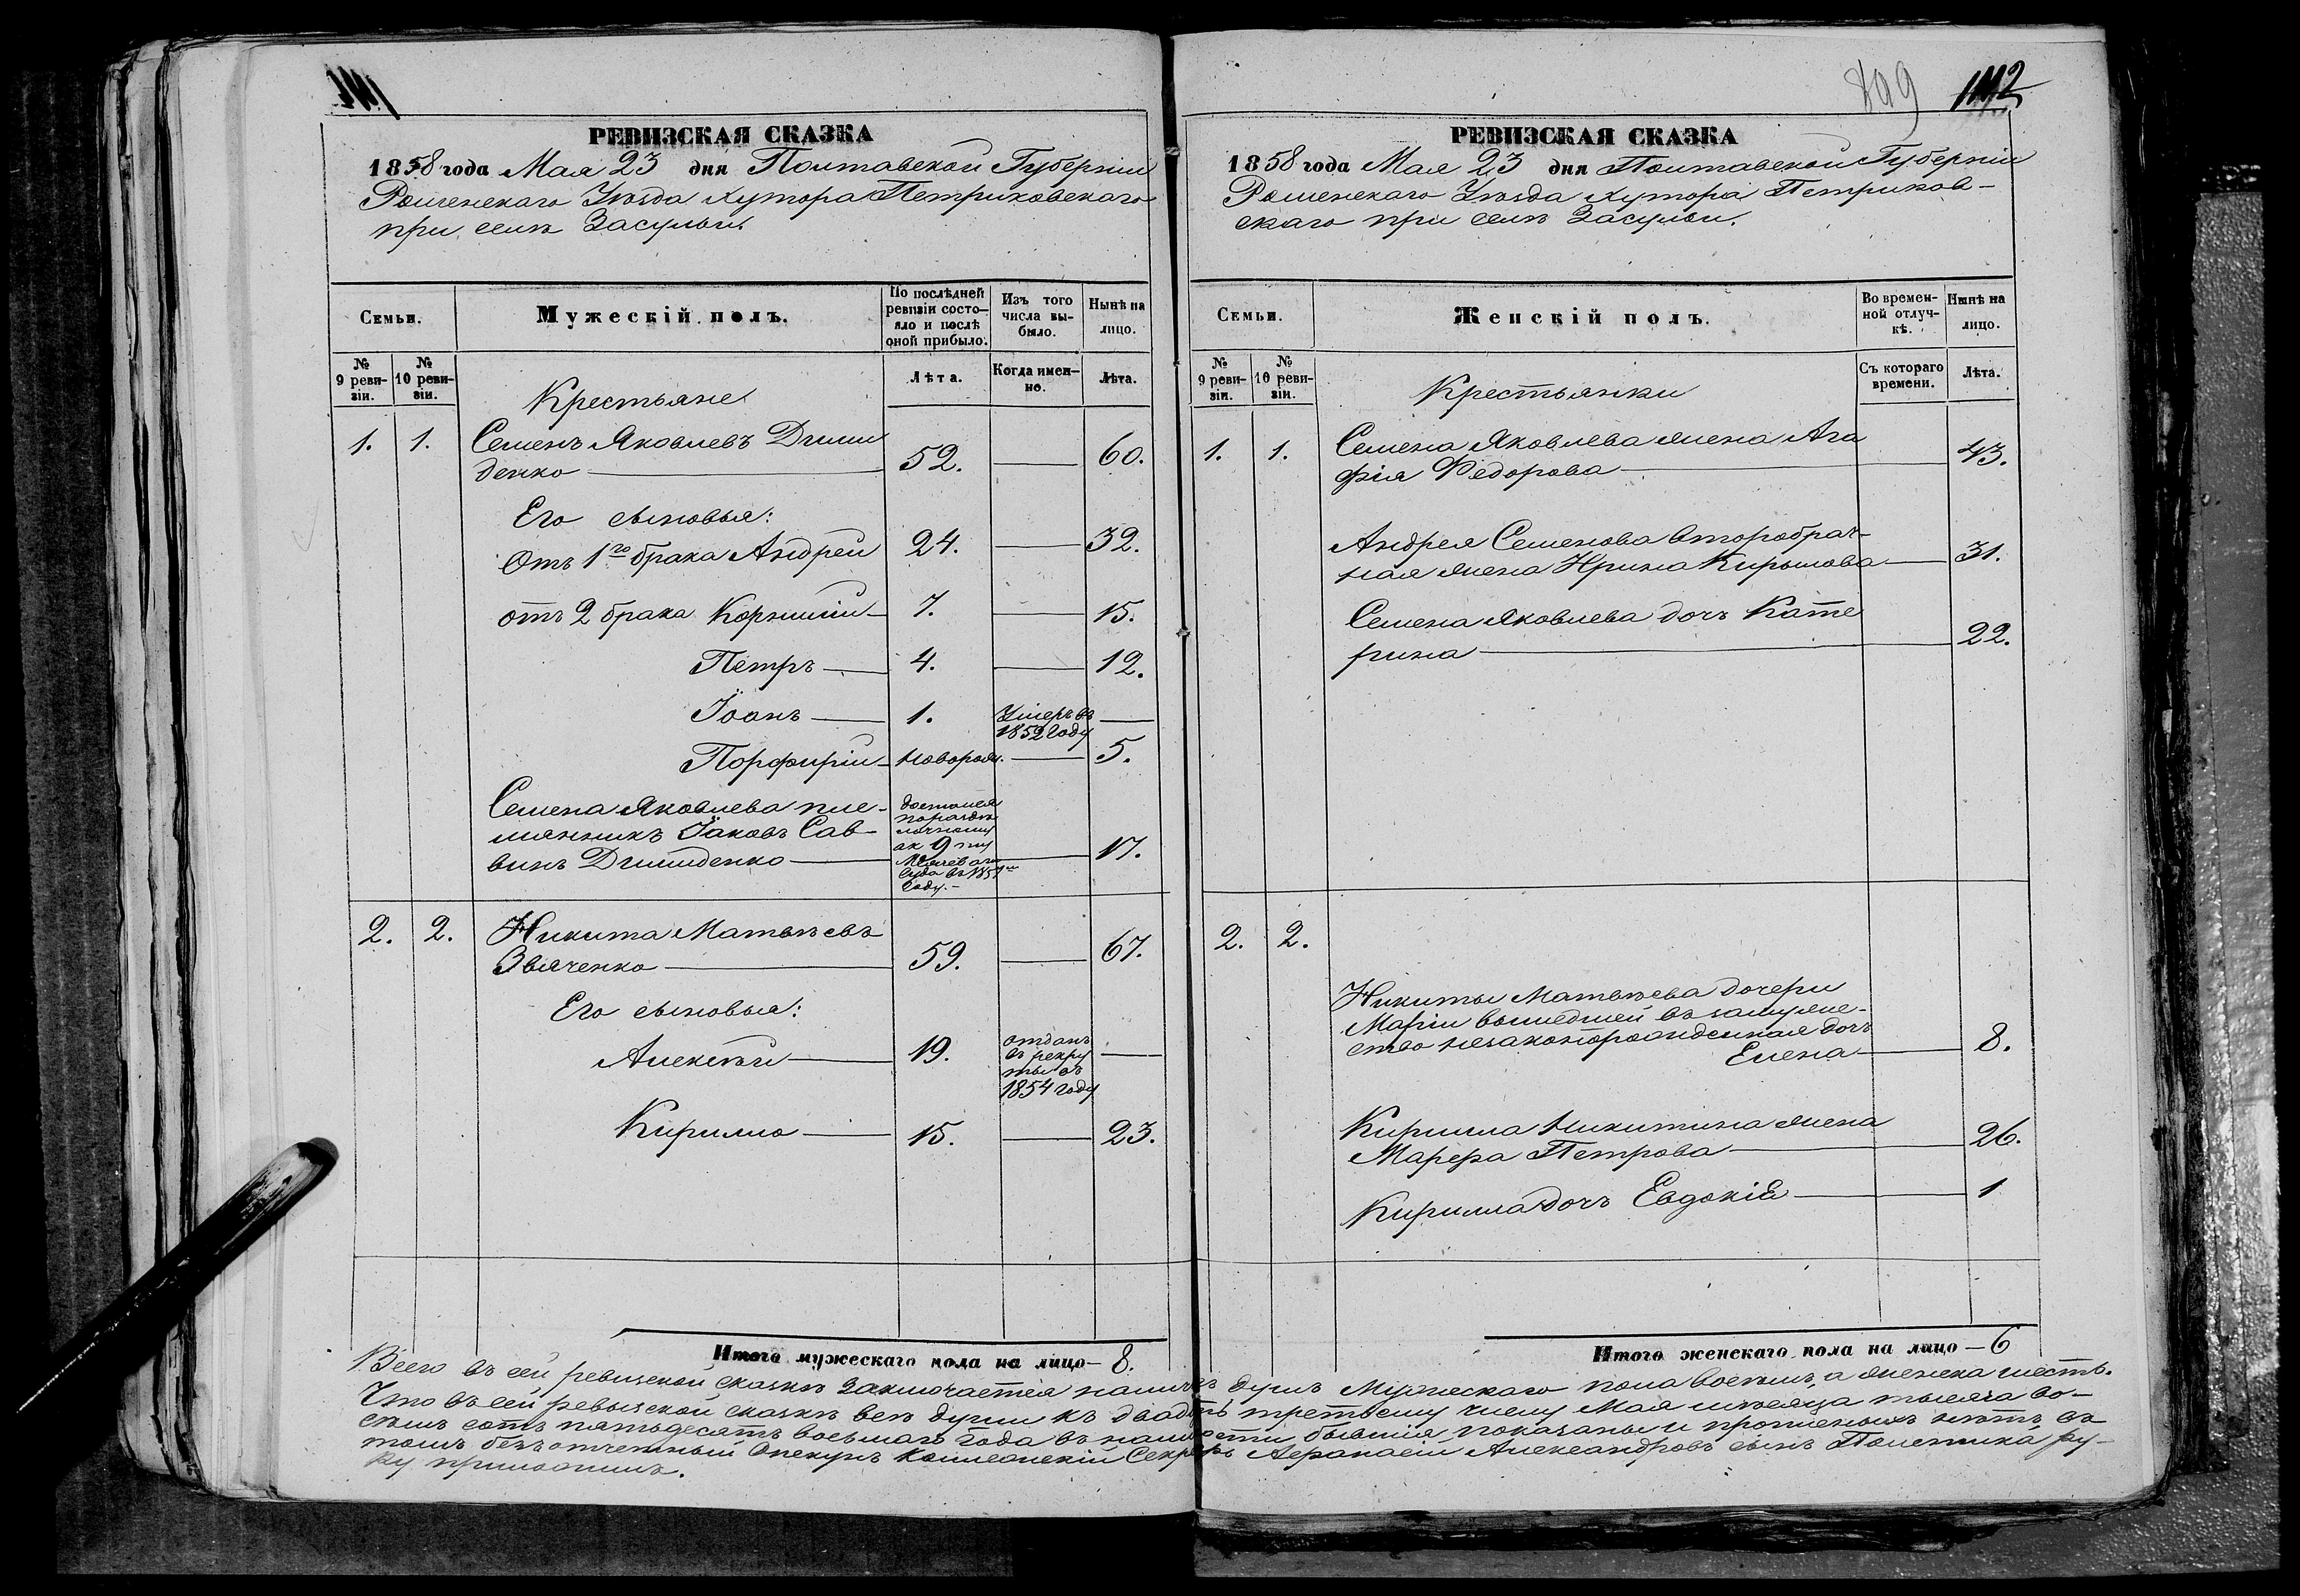 РЕВИЗСКАЯ СКАЗКА
1858 года Мая 23 дня Полтавской Губерніи
Роменскаго Уѣзда хутора Петриковскаго
при селѣ Засульи
Семьи.
Мужескій полъ.
По послѣдней ревизіи состояло и послѣ оной прибыло.
Изъ того числа выбыло.
Нынѣ на лицо.
№ 9 ревизіи.
№ 10 ревизіи.
Лѣта.
Когда именно.
Лѣта.
Крестьяне
1. 1. Семенъ Яковлевъ Дми
денко 52. 60.
Его сыновья:
Отъ 1го брака Андрей 24. 32.
отъ 2 брака Корнилій 7. 15.
Петръ 4. 12.
Іоанъ 1. Умеръ въ
1852 году
Порфирій новорож. 5.
Семена Яковлева пле-
мянникъ Іаковъ Сав-
винъ 17.
достался
по раздѣ
лочному
ак
суда въ 1851м
году.
2. 2. Никита Матвѣевъ
Звяченко 59. 67.
Его сыновья:
Алексѣй 19. отданъ
въ рекру
ты въ
1854 году
Кирилло 15. 23.
Итого мужескаго пола на лицо 8.
899 1112
РЕВИЗСКАЯ СКАЗКА
1858 года Мая 23 дня Полтавской Губерніи
Роменскаго Уѣзда хутора Петриков-
скаго при селѣ Засульи.
Семьи.
Женскій полъ.
Во временной отлучкѣ.
Нынѣ на лицо.
№ 9 ревизіи.
№ 10 ревизіи.
Съ котораго времени.
Лѣта.
Крестьянки
1. 1. Семена Яковлева жена Ага
фія Федорова 43.
Андрея Семенова второбрач-
ная жена Ирина Кирылова 31.
Семена Яковлева дочь Кате
рина 22.
2. 2.
Никиты Матвѣева дочери
Маріи вышедшей въ замуже-
ство незаконорожденная дочь
Елена 8.
Кирилла Никитина жена
Марфа Петрова 26.
Кирилла дочь Евдокія 1
Итого женскаго пола на лицо 6
Всего въ сей ревизской сказкѣ заключается наличныхъ душъ Мужескаго пола восемь, а женска шесть.
Что въ сей ревизской сказкѣ всѣ души къ двадцать третьему числу Мая мѣсяца тысяча во-
семь сотъ пятьдесятъ восьмаго года въ наличности бывшія показаны и прописныхъ нѣтъ въ
томъ Опекунъ Коллежскій Секретарь Афанасій Александровъ сынъ Полетика ру-
ку приложилъ.